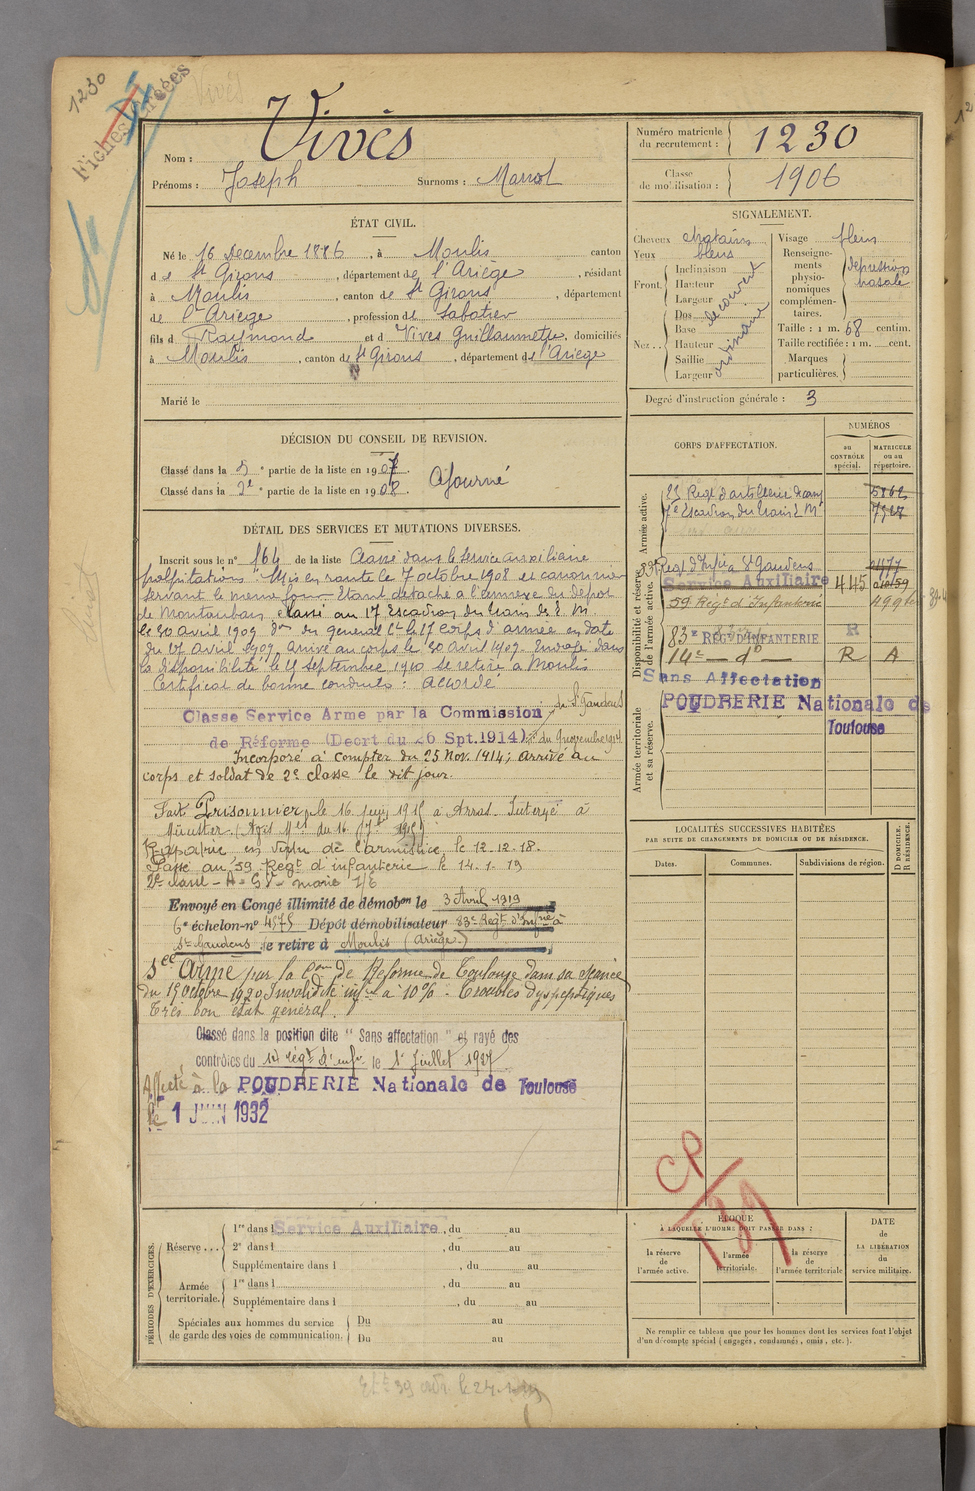 1230
Fiches
Vivès
Nom : Vivès
Prénoms : Joseph Surnoms : Marrot
Numéro matricule du recrutement : 1230
Classe de mobilisation : 1906
ÉTAT CIVIL.
Né le 16 Decembre 1886, à Moulis canton
de St Girons, département de l'Ariège, résidant
à Moulis, canton de St Girons, département
de l'Ariege, profession de Sabotier
fils d Raymond et d Vives Guillaumette, domiciliés
à Moulis, canton de St Girons, département de l'Ariege
Marié le
SIGNALEMENT.
Cheveux chatains
Yeux bleus
Front. Inclinaison
Hauteur
Largeur
découvert
Nez.. Dos
Base
Hauteur
Saillie
Largeur
ordinaire
Visage plein
Renseignements physionomiques complémentaires. depression nasale
Taille : 1 m. 68 centim.
Taille rectifiée : 1 m. cent.
Marques particulières.
Degré d'instruction générale : 3
DÉCISION DU CONSEIL DE REVISION.
Classé dans la 5e partie de la liste en 1907.
Classé dans la 2e partie de la liste en 1908. Ajourné
DÉTAIL DES SERVICES ET MUTATIONS DIVERSES.
Inscrit sous le n° 164 de la liste Classé dans le service auxiliaire
palpitations. Mis en route le 7 octobre 1908 et canonnier
servant le meme jour. Etant détaché à l'annexe du depot
de Montauban, classé au 17 Escadron du train des E. M
le 30 avril 1909 Don du general Ct le 17 corps d'armée en date
du 17 avril 1909. Arrivé au corps le 30 avril 1909. Envoyé dans
la disponibilité le 25 septembre 1910 se retire à Moulis
Certificat de bonne conduite : accordé
Classe Service Arme par la Commission de St Gaudens
de Réforme (Decrt du 26 Spt.1914) du 9 novembre 1914
Incorporé à compter du 25 Nov. 1914; arrivé au
corps et soldat de 2e classe le dit jour.
Fait Prisonnier le 16 juin 1915 à Arras. Interné à
Munster.
Rapatrié en vertu de l'armistice le 12-12-18.
Passé au 59 Regt d'infanterie le 14-1-19
Envoyé en Congé illimité de démobon le 3 Avril 1919
6e échelon-n° 4575 Dépôt démobilisateur 83e Regt d'Infrie à
St Gaudens se retire à Moulis (Ariège)
Sce Armé par la Com de Reforme de Toulouse dans sa séance
du 15 Octobre 1920 Invalidité infre à 10% - Troubles dyspeptiques
Très bon état général.
Classé dans la position dite "Sans affectation" et rayé des
contrôles du 14 régt d'infie le 1er Juillet 1927
Affecté à la POUDRERIE Nationale de Toulouse
le 1 JUIN 1932
CORPS D'AFFECTATION.
NUMÉROS
au CONTRÔLE spécial.
MATRICULE ou au répertoire.
Armée active.
23 Regt d'artillerie de camp 5862
17e Escadron du train E Mre 7527
Disponibilité et réserve de l'armée active.
Regt d'Infie à St Gaudens
Service Auxiliaire 445
59 Regt d'Infanterie
83e REGt D'INFANTERIE R
14e - do - R A
Sans Affectation
Armée territoriale et sa réserve.
POUDRERIE Nationale de
Toulouse
LOCALITÉS SUCCESSIVES HABITÉES
PAR SUITE DE CHANGEMENTS DE DOMICILE OU DE RÉSIDENCE.
D DOMICILE. R RÉSIDENCE.
Dates. Communes. Subdivisions de région.
CP
139
PÉRIODES D'EXERCICES.
Réserve... 1re dans l Service Auxiliaire, du au
2e dans l , du au
Supplémentaire dans l , du au
Armée territoriale. 1re dans l , du au
Supplémentaire dans l , du au
Spéciales aux hommes du service de garde des voies de communication. Du au
Du au
ÉPOQUE
À LAQUELLE L'HOMME DOIT PASSER DANS :
la réserve de l'armée active.
l'armée territoriale.
la réserve de l'armée territoriale
DATE de LA LIBÉRATION du service militaire.
Ne remplir ce tableau que pour les hommes dont les services font l'objet
d'un décompte spécial (engagés, condamnés, omis, etc.).